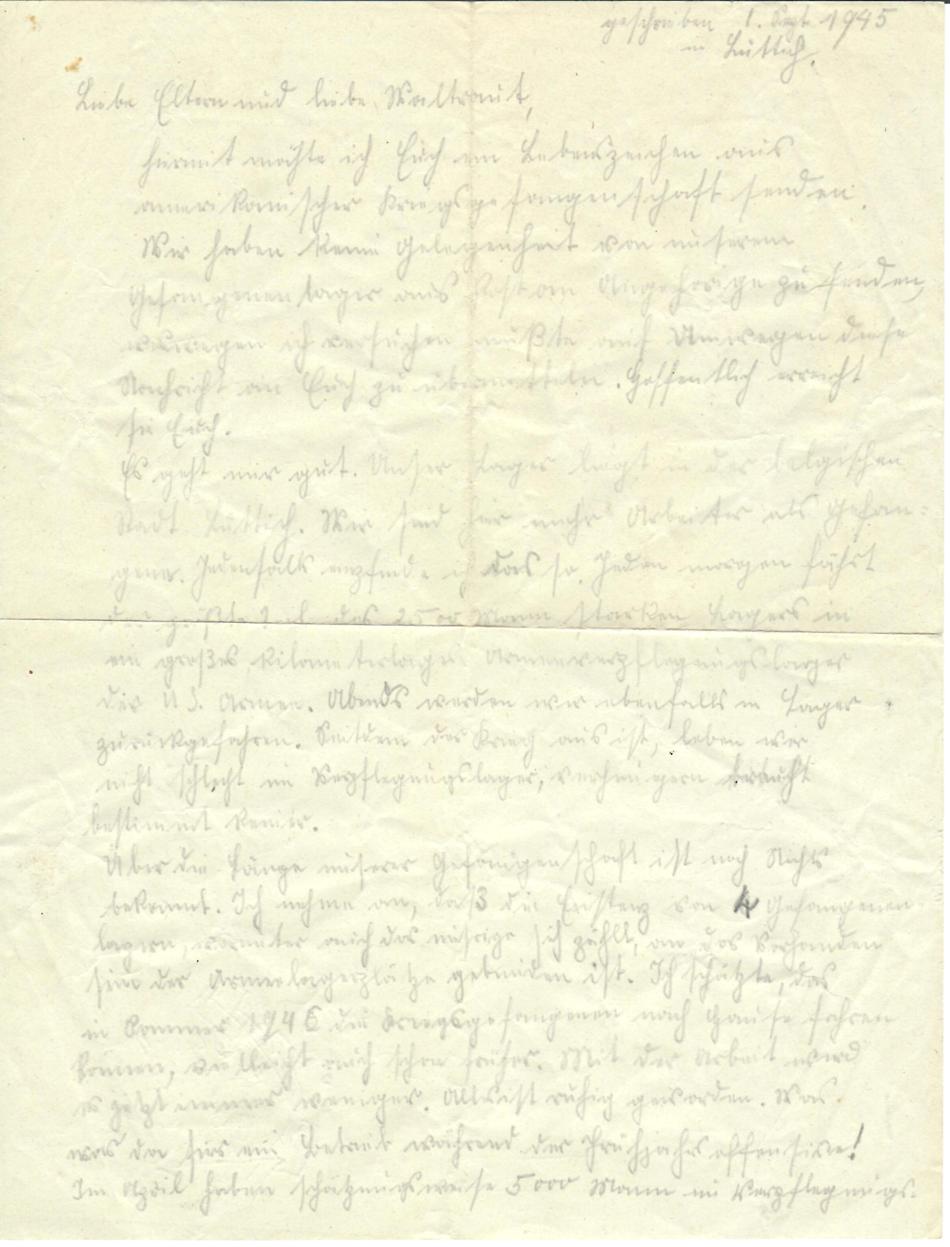 geschrieben 1. Sept. 1945
in Lüttich.
Liebe Eltern und liebe Waltraut,
hiermit möchte ich Euch ein Lebenszeichen aus
amerikanischer Kriegsgefangenschaft senden.
Wir haben keine Gelegenheit von unserem
Gefangenenlager aus Post an Angehörige zu senden,
weswegen ich versuchen mußte auf Umwegen diese
Nachricht an Euch zu übermitteln. Hoffentlich erreicht
sie Euch.
Es geht mir gut. Unser Lager liegt in der belgischen
Stadt Lüttich. Wir sind hier mehr Arbeiter als Gefan-
gene. Jedenfalls empfinde ich das so. Jeden morgen fährt
der größte Teil des 2500 Mann starken Lagers in
ein großes Armeeverpflegungslager
der U.S. Armee. Abends werden wir ebenfalls in Lager
zurückgefahren. Seitdem der Krieg aus ist, leben wir
nicht schlecht im Verpflegungslager, verhungern braucht
bestimmt keiner.
Über die Länge unserer Gefangenschaft ist noch Nichts
bekannt. Ich nehme an, daß die Existenz von 4 Gefangenen-
lagern, worunter auch das unsrige sich zählt, an das Vorhanden
sein der Armeelagerplätze gebunden ist. Ich schätzte, das
in Sommer 1946 die Kriegsgefangenen nach Hause fahren
können, vielleicht auch schon früher. Mit der Arbeit wird
es jetzt immer weniger. Alles ist ruhig geworden. Was
was da hier ein Betrieb während der Frühjahrsoffensive!
Im April haben schätzungsweise 5000 Mann im Verpflegungs-